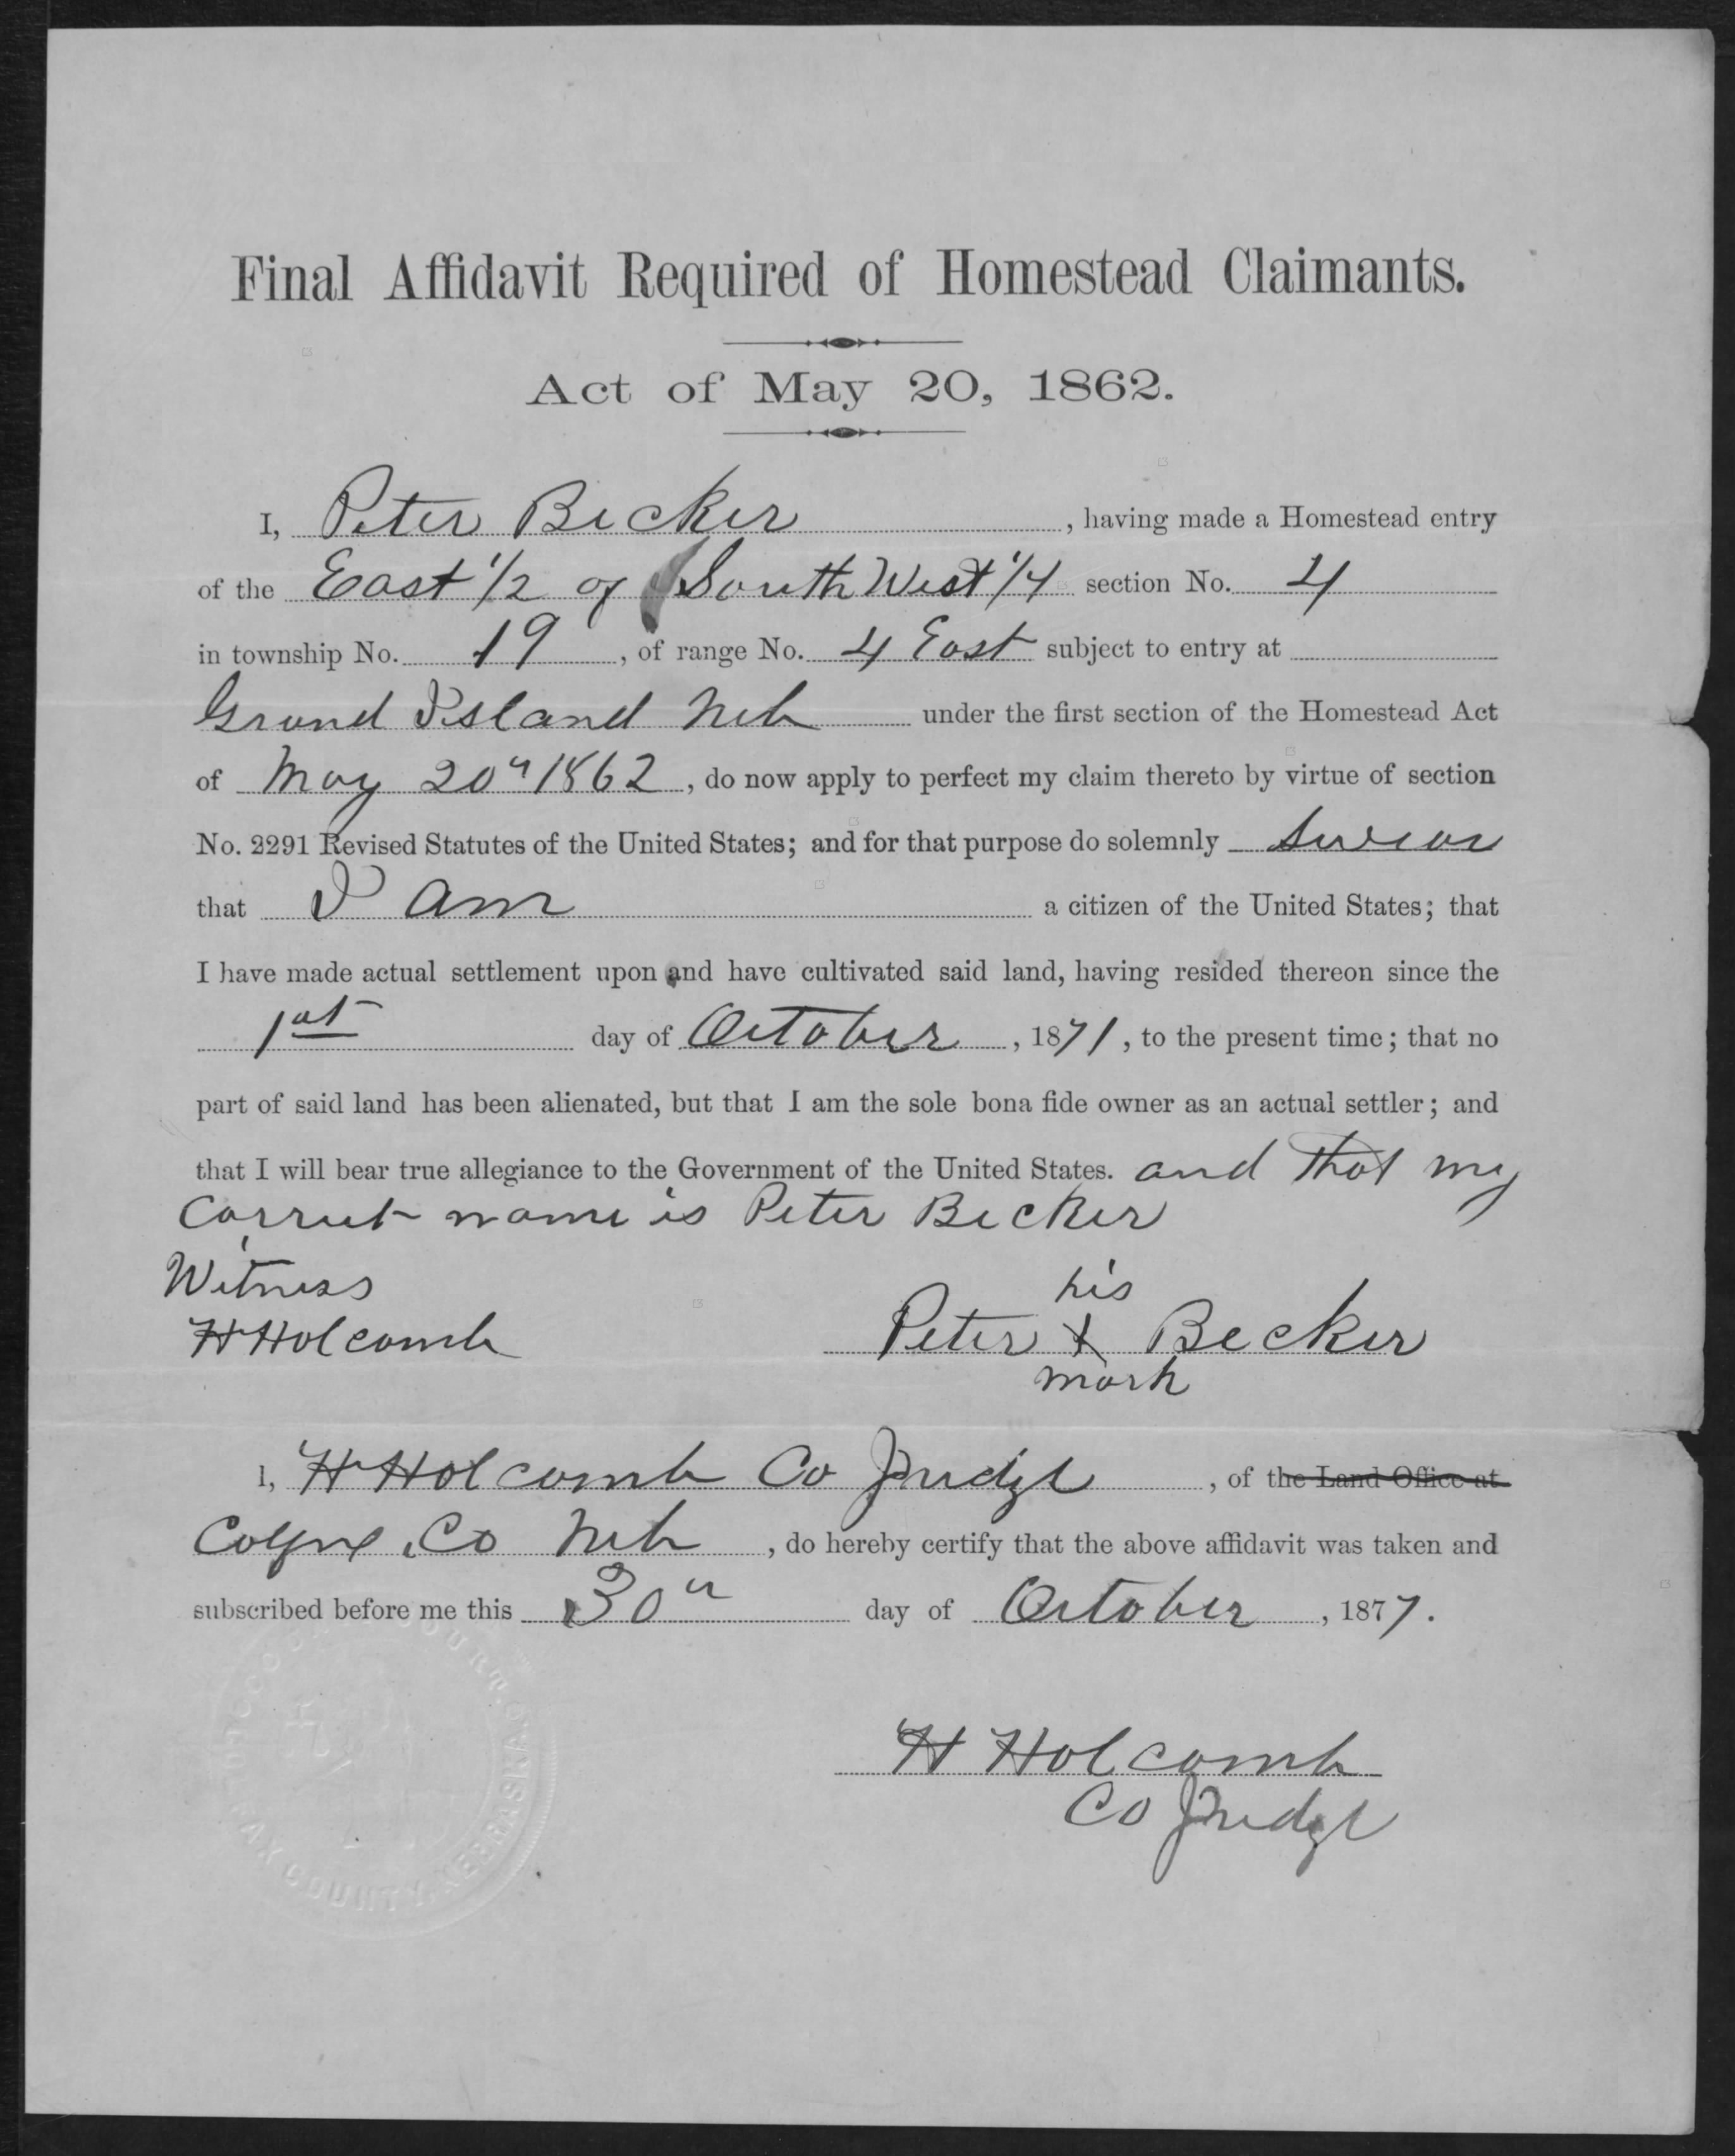 Final Affidavit Required of Homestead Claimants.
Act of May 20, 1862.
I, Peter Becker, having made a Homestead entry
of the East 1/2 of South West 1/4 section No. 4
in township No. 19, of range No. 4 East subject to entry at
Grand Island Neb under the first section of the Homestead Act
of May 20" 1862, do now apply to perfect my claim thereto by virtue of section
No. 2291 Revised Statutes of the United States; and for that purpose do solemnly swear
that I am a citizen of the United States; that
I have made actual settlement upon and have cultivated said land, having resided thereon since the
1st day of October, 1871, to the present time; that no
part of said land has been alienated, but that I am the sole bona fide owner as an actual settler; and
that I will bear true allegiance to the Government of the United States. and that my
Correct name is Peter Becker
Witness
H Holcomb
his
Peter X Becker
mark
I, H Holcomb Co Judge, of the Land Office at
Colfax Co Neb, do hereby certify that the above affidavit was taken and
subscribed before me this 30" day of October, 1877.
H Holcomb
Co Judge
COURT
COUNTY, NEBRASKA